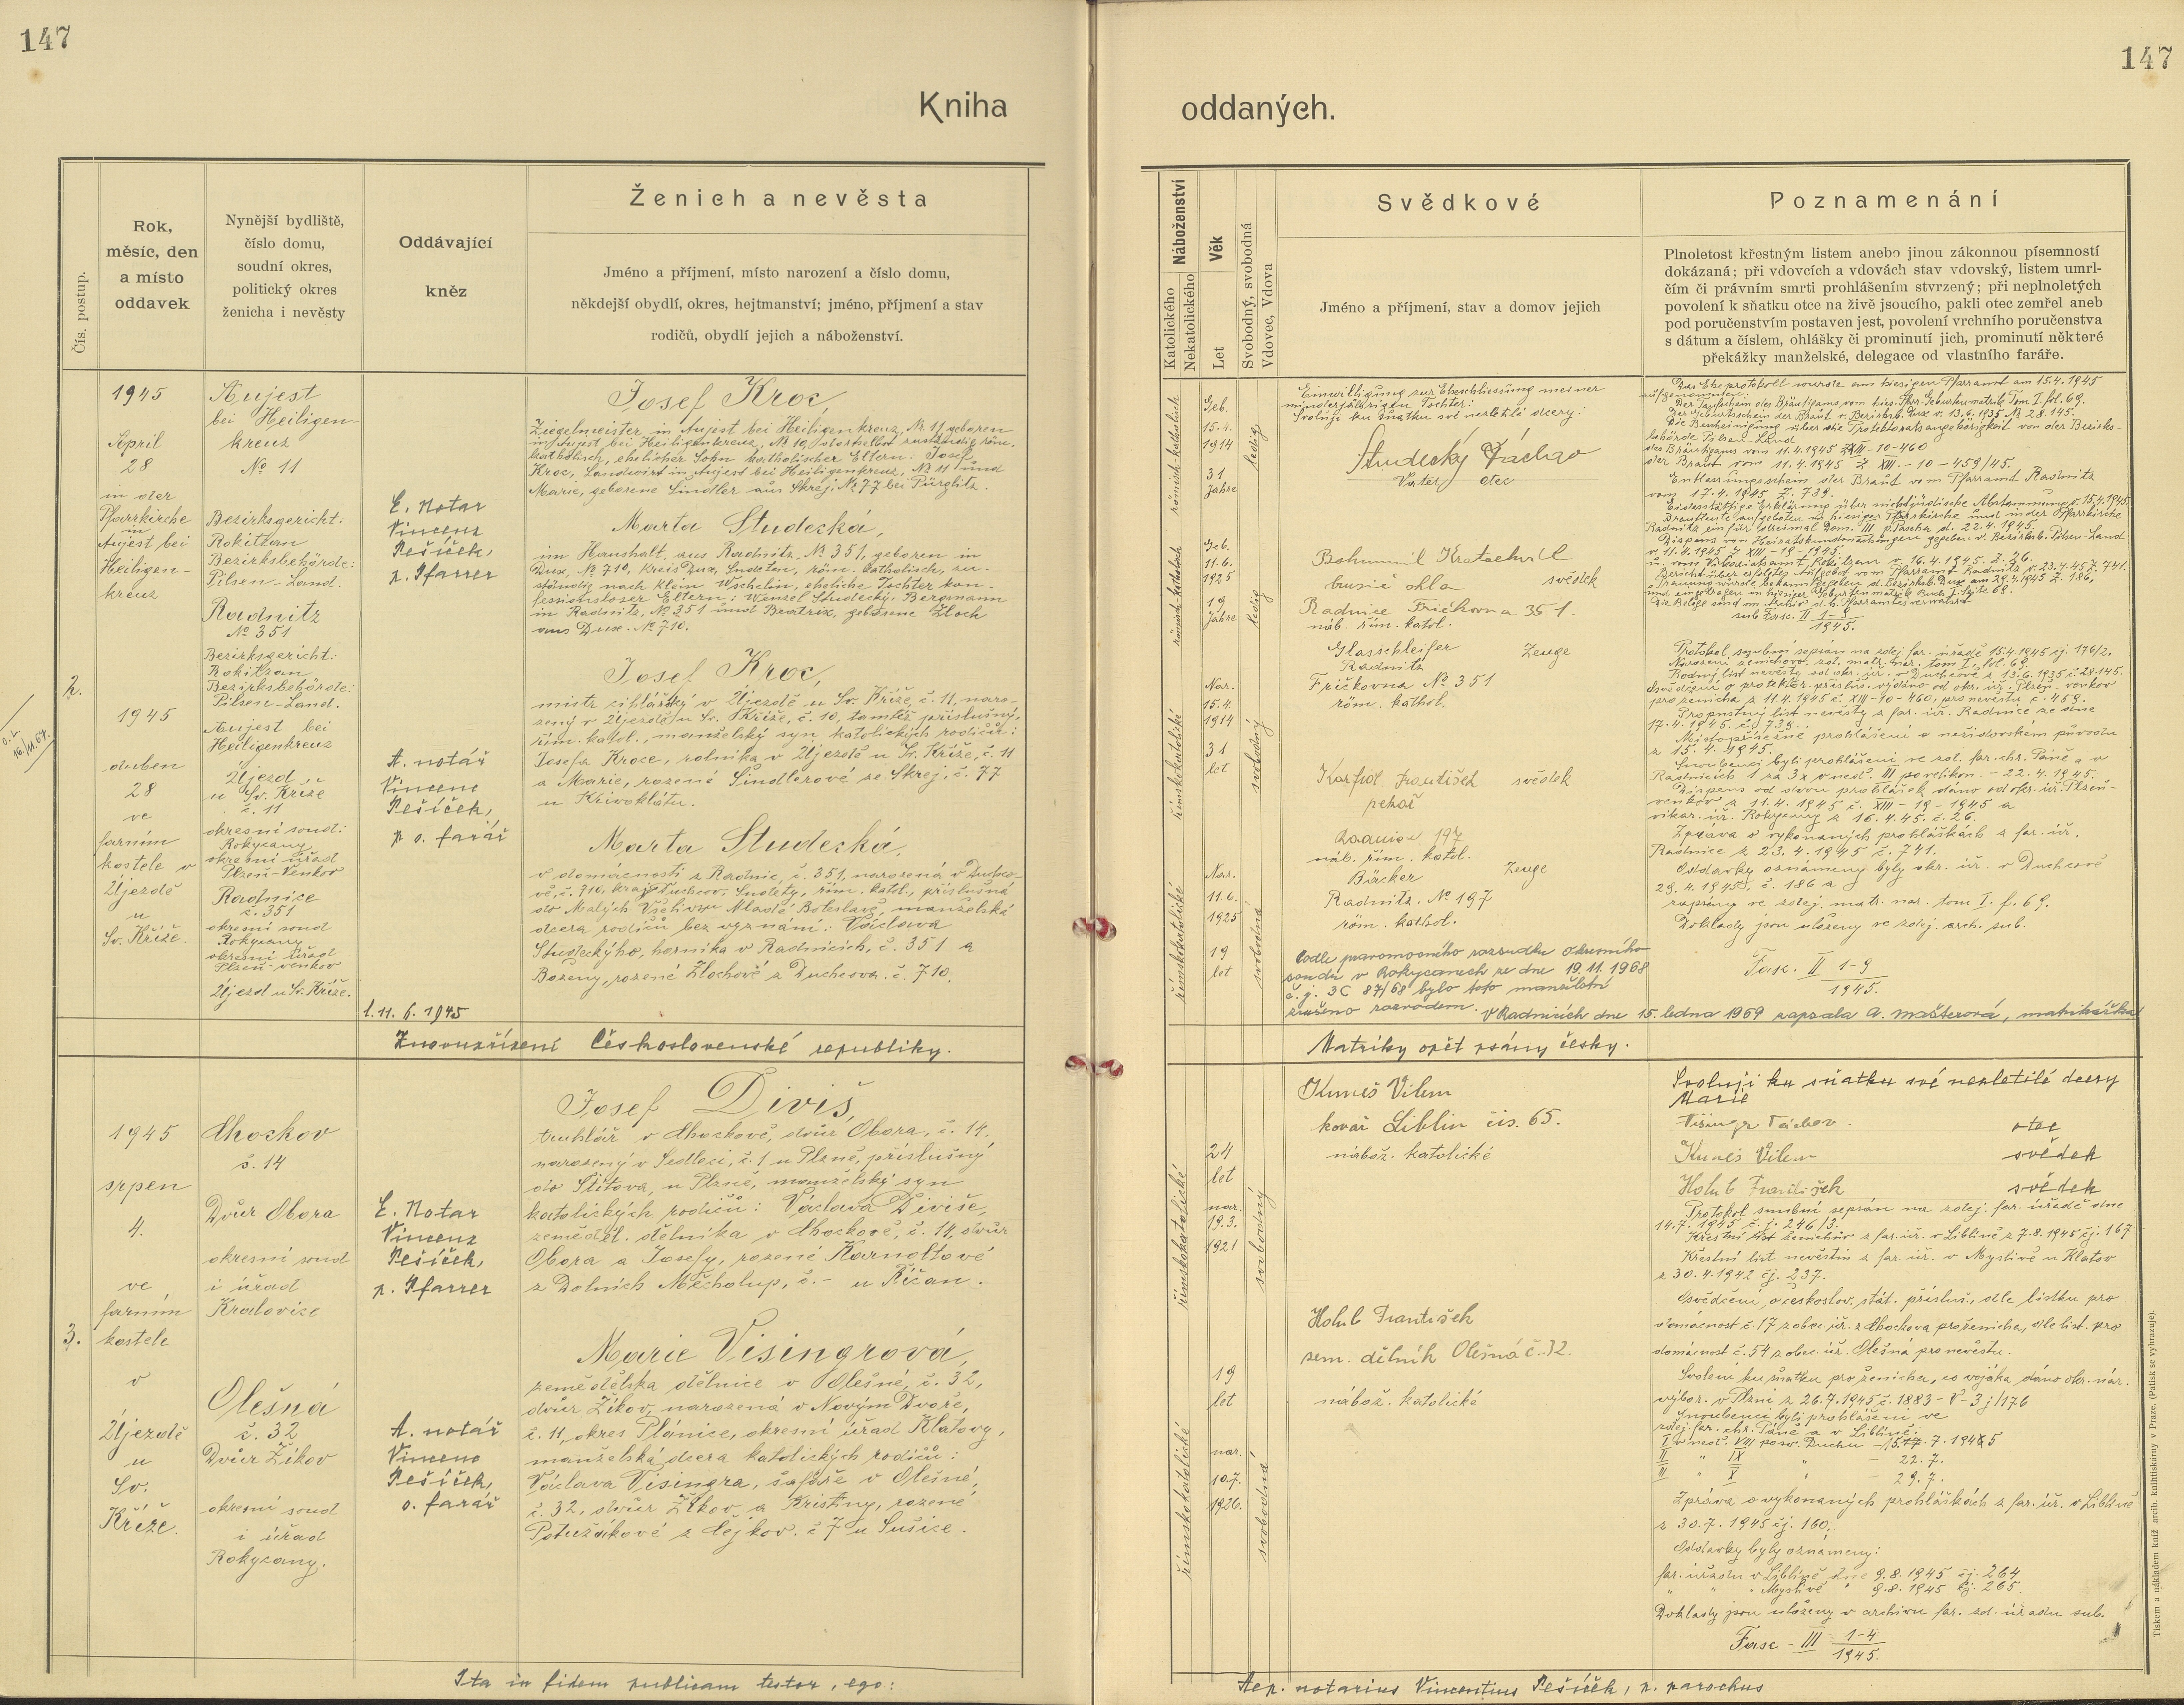 147
147
Kniha
oddaných.
Čís. postup.
Rok,
měsíc, den
a místo
oddavek
Nynější bydliště,
číslo domu,
soudní okres,
politický okres
ženicha i nevěsty
Oddávající
kněz
Ženich a nevěsta
Jméno a příjmení, místo narození a číslo domu,
někdejší obydlí, okres, hejtmanství; jméno, příjmení a stav
rodičů, obydlí jejich a náboženství.
Náboženství
Katolického
Nekatolického
Věk
Let
Svobodný, svobodná
Vdovec, Vdova
Svědkové
Jméno a příjmení, stav a domov jejich
Poznamenání
Plnoletost křestným listem anebo jinou zákonnou písemností
dokázaná; při vdovcích a vdovách stav vdovský, listem umrl-
čím či právním smrti prohlášením stvrzený; při neplnoletých
povolení k sňatku otce na živě jsoucího, pakli otec zemřel aneb
pod poručenstvím postaven jest, povolení vrchního poručenstva
s dátum a číslem, ohlášky či prominutí jich, prominutí některé
překážky manželské, delegace od vlastního faráře.
2.
1945
April
28
in der
Pfarrkirche
in
Aujest bei
Heiligen-
kreuz
1945
duben
28
ve
farním
kostele v
Újezdě
u
Sv. Kříže.
Aujest
bei Heiligen-
kreuz
№ 11
Bezirksgericht:
Rokitzan
Bezirksbehörde:
Pilsen-Land.
Radnitz
№ 351
Bezirksgericht:
Rokitzan
Bezirksbehörde:
Pilsen-Land.
Aujest bei
Heiligenkreuz
Újezd
u Sv. Kříže
č. 11
okresní soud:
Rokycany
okresní úřad
Plzeň-Venkov
Radnice
č. 351
okresní soud
Rokycany
okresní úřad
Plzeň-venkov
Újezd u Sv. Kříže.
E. Notar
Vincenz
Pešíček,
p. Pfarrer
A. notář
Vincenc
Pešíček,
p. o. farář
1. 11. 6. 1945
Josef Kroc,
Ziegelmeister in Aujest bei Heiligenkreuz, № 11, geboren
in Aujest bei Heiligenkreuz, № 10, daselbst zuständig, röm.
katholisch, ehelicher Sohn katholischer Eltern: Josef
Kroc, Landwirt in Aujest bei Heiligenkreuz, № 11 und
Marie, geborene Šindler aus Skrej, № 77 bei Pürglitz.
Marta Studecká,
im Haushalt, aus Radnitz, № 351, geboren in
Dux, № 710, Kreis Dux, Sudeten, röm. katholisch, zu-
ständig nach Klein Wschelin, eheliche Tochter kon-
fessionsloser Eltern: Wenzel Studecký, Bergmann
in Radnitz, № 351 und Beatrix, geborene Zloch
aus Dux. № 710.
Josef Kroc,
mistr cihlářský v Újezdě u Sv. Kříže, č. 11, naro-
zený v Újezdě u Sv. Kříže, č. 10, tamtéž příslušný,
řím. katol., manželský syn katolických rodičů:
Josefa Kroce, rolníka v Újezdě u Sv. Kříže, č. 11
a Marie, rozené Šindlerové ze Skrej, č. 77
u Křivoklátu.
Marta Studecká,
v domácnosti z Radnic, č. 351, narozená v Duchco-
vě, č. 710, kraj Duchcov, Sudety, řím. katol., příslušná
do Malých Všelis u Mladé Boleslavě, manželská
dcera rodičů bez vyznání: Václava
Studeckýho, horníka v Radnicích, č. 351 a
Boženy, rozené Zlochové z Duchcova. č. 710.
römisch-katholisch
Geb.
15.4.
1914
31
Jahre
ledig
römisch-katholisch
Geb.
11.6.
1925
19
Jahre
ledig
římskokatolické
Nar.
15.4.
1914
31
let
svobodný
římskokatolické
Nar.
11.6.
1925
19
let
svobodná
Einwilligung zur Eheschliessung meiner
minderjährigen Tochter:
Svoluji ku sňatku své nezletilé dcery:
Studecký
Vater otec
Bohumil Kratochvíl
brusič skla svědek
Radnice Fričkovna 351.
náb. řím. katol.
Glasschleifer Zeuge
Radnitz
Fričkovna № 351
röm. kathol.
František svědek
pekař
Radnice 197
náb. řím. katol.
Bäcker Zeuge
Radnitz. № 197
röm. kathol.
Podle pravomocného rozsudku okresního
soudu v Rokycanech ze dne 19.11.1968
č. j. 3C 87/68 bylo toto manželství
zrušeno rozvodem. V Radnicích dne 15. ledna 1969 zapsala A. Mašterová, matrikářka
Das Eheprotokoll wurde am hiesigen Pfarramt am 15.4.1945
aufgenommen.
Der Taufschein des Bräutigams vom hies. Pfarr. Geburtenmatrik Tom I. fol. 69.
Der Geburtschein der Braut v. Bezirksb. Dux v. 13.6.1935 № 28.145.
Die Bescheinigung über die Protektoratsangehörigkeit von der Bezirks-
behörde Pilsen-Land
des Bräutigams vom 11.4.1945 Z. XIII-10-460
der Braut vom 11.4.1945 Z. XIII.-10-459/45.
Entlassungsschein der Braut vom Pfarramt Radnitz
vom 17.4.1945 Z. 739.
Eidesstättige Erklärung über nichtjüdische Abstammung v. 15.4.1945.
Brautleute aufgeboten in hiesiger Pfarrkirche und in der Pfarrkirche
Radnitz ein für dreimal Dom. III p. Pascha d. 22.4.1945.
v. 11.4.1945 Z. XIII-19-1945.
u. vom Vikariatsamt, Rokitzan v. 16.4.1945. Z. 26.
Bericht über erfolgtes Aufgebot vom Pfarramt Radnitz v. 23.4.45 Z. 741.
Trauung wurde bekanntgegeben d. Bezirksb. Dux am 29.4.1945 Z. 186,
Die Belege sind im Archiv d. h. Pfarramtes verwahrt
sub Fasc. II 1-9
1945.
Protokol snubní sepsán na zdej. far. úřadě 15.4.1945 čj. 176/2.
Narození ženichovo zdej. matr. nar. tom I., fol. 69.
Rodný list nevěsty od okr. úř. v Duchcově z 13.6.1935 č. 28.145.
Osvědčení o protektor. přísluš. vydáno od okr. úř. Plzeň. venkov
pro ženicha z 11.4.1945 č. XIII-10-460, pro nevěstu č. 459.
Propustný list nevěsty z far. úř. Radnice ze dne
17.4.1945. čj. 739.
Místopřísežné prohlášení o nežidovském původu
z 15.4.1945.
Snoubenci byli prohlášeni ve zdej. far. chr. Páně a v
Radnicích 1 za 3x v neděl. III po velikon. - 22.4.1945.
Dispens od dvou prohlášek dáno od okr. úř. Plzeň-
venkov z 11.4.1945 č. XIII-19-1945 a
vikar. úř. Rokycany z 16.4.45. č. 26.
Zpráva o vykonaných prohláškách z far. úř.
Radnice z 23.4.1945 č. 741.
Oddavky oznámeny byly okr. úř. v Duchcově
29.4.1945. č. 186 a
zapsány ve zdej. matr. nar. tom I. f. 69.
Doklady jsou uloženy ve zdej. arch. sub.
Fasc. II 1-9
1945.
Znovuzřízení Československé republiky.
Matriky opět psány česky.
3.
1945
srpen
4.
ve
farním
kostele
v
Újezdě
u
Sv.
Kříže.
Chockov
č. 14
Dvůr Obora
okresní soud
i úřad
Kralovice
Olešná
č. 32
Dvůr Žikov
okresní soud
i úřad
Rokycany.
E. Notar
Vincenz
Pešíček,
p. Pfarrer
A. notář
Vincenc
Pešíček,
o. farář
Josef Diviš,
truhlář v Chockově, dvůr Obora, č. 14,
narozený v Sedleci, č. 1 u Plzně, příslušný
do Štítova, u Plzně, manželský syn
katolických rodičů: Václava Diviše,
zeměděl. dělníka v Chockově, č. 14, dvůr
Obora a Josefy, rozené Karnoltové
z Dolních Měcholup, č. - u Říčan.
Marie Visingrová,
zemědělská dělnice v Olešné, č. 32,
dvůr Žikov, narozená v Novým Dvoře,
č. 11, okres Plánice, okresní úřad Klatovy,
manželská dcera katolických rodičů:
Václava Visingra, šafáře v Olešné,
č. 32, dvůr Žikov a Kristiny, rozené
Potužákové z Čejkov. č 7 u Sušice.
římskokatolické
24
let
nar.
19.3.
1921
svobodný
římskokatolické
19
let
nar.
10.7.
1926.
svobodná
Kuneš Vilem
kovář Liblin čis. 65.
nábož. katolické
Holub František
zem. dělník Olešná č. 32.
nábož. katolické
Svoluji ku sňatku své nezletilé dcery
Marie
otec
Kuneš Vilem svědek
Holub František svědek
Protokol snubní sepsán na zdej. far. úřadě dne
14.7.1945 č. j. 246/3.
Křestní list ženichův z far. úř. v Liblíně z 7.8.1945 čj. 167
Křestní list nevěstin z far. úř. v Myslívě u Klatov
z 30.4.1942 čj. 237.
Osvědčení o českoslov. stát. přísluš., dle lístku pro
domácnost č. 17 z obec. úř. z Chockova pro ženicha, dle list. pro
domácnost č. 54 z obec. úř. Olešná pro nevěstu.
Svolení ku sňatku pro ženicha, co vojáka dáno okr. nár.
výbor. v Plzni z 26.7.1945 č. 1883-V-3j/176
Snoubenci byli prohlášeni ve
zdej. far. chr. Páně a v Liblíně.
I v neděl. VIII po sv. Duchu - 15. 7. 1945
II " IX " - 22. 7.
III " X " - 29. 7.
Zpráva o vykonaných prohláškách z far. úř. v Liblíně
z 30.7.1945 čj. 160.
Oddavky byly oznámeny:
far. úřadu v Liblíně dne 9.8.1945 čj. 264
" " " Myslívě " 9.8.1945 čj. 265.
Doklady jsou uloženy v archivu far. zd. úřadu sub.
Fasc - III 1-4
1945.
Ita in fidem publicam testor, ego:
Aep. notarius Vincentius Pešíček, p. parochus
Tiskem a nákladem kniž. arcib. knihtiskárny v Praze. (Patisk se vyhrazuje).